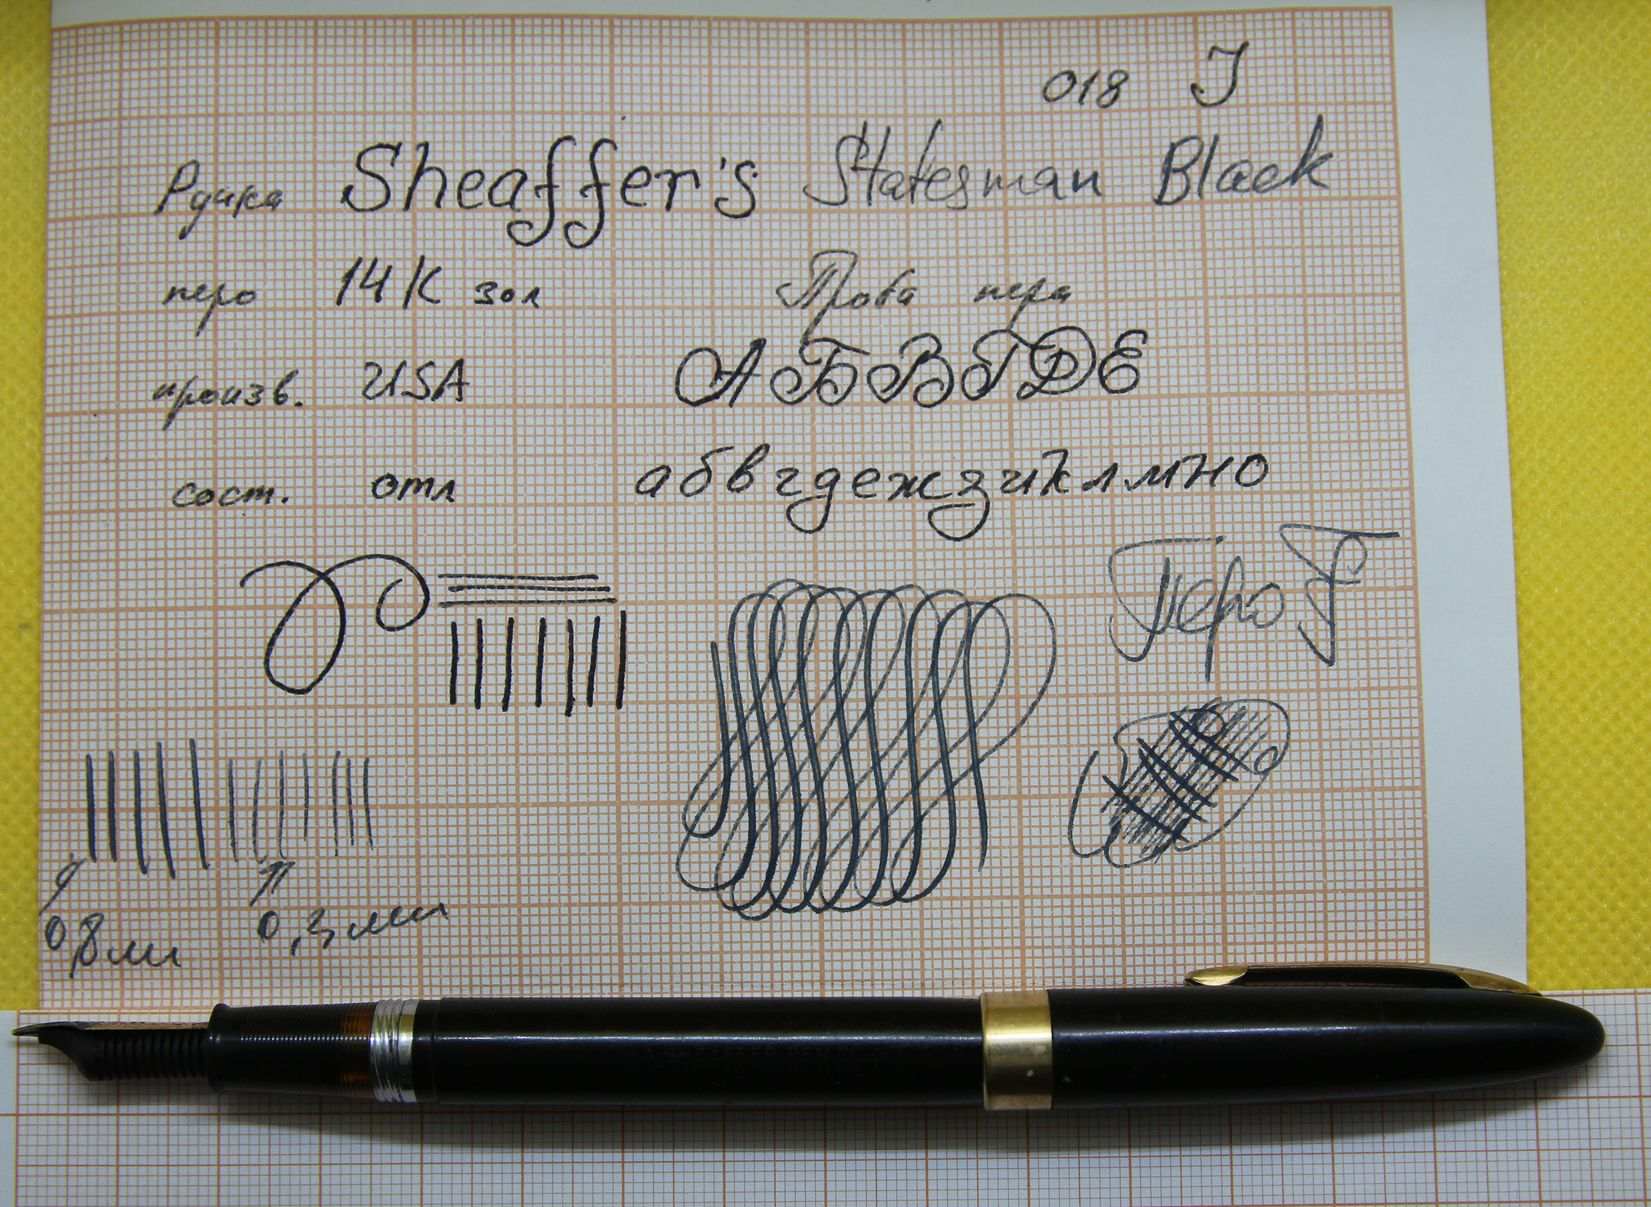 018 J
Ручка Sheaffer's Statesman Black
перо 14К зол
Проба пера
произв. USA
АБВГДЕ
сост. отл
абвгдежзиклмно
Перо F
0,8 мм
0,3 мм